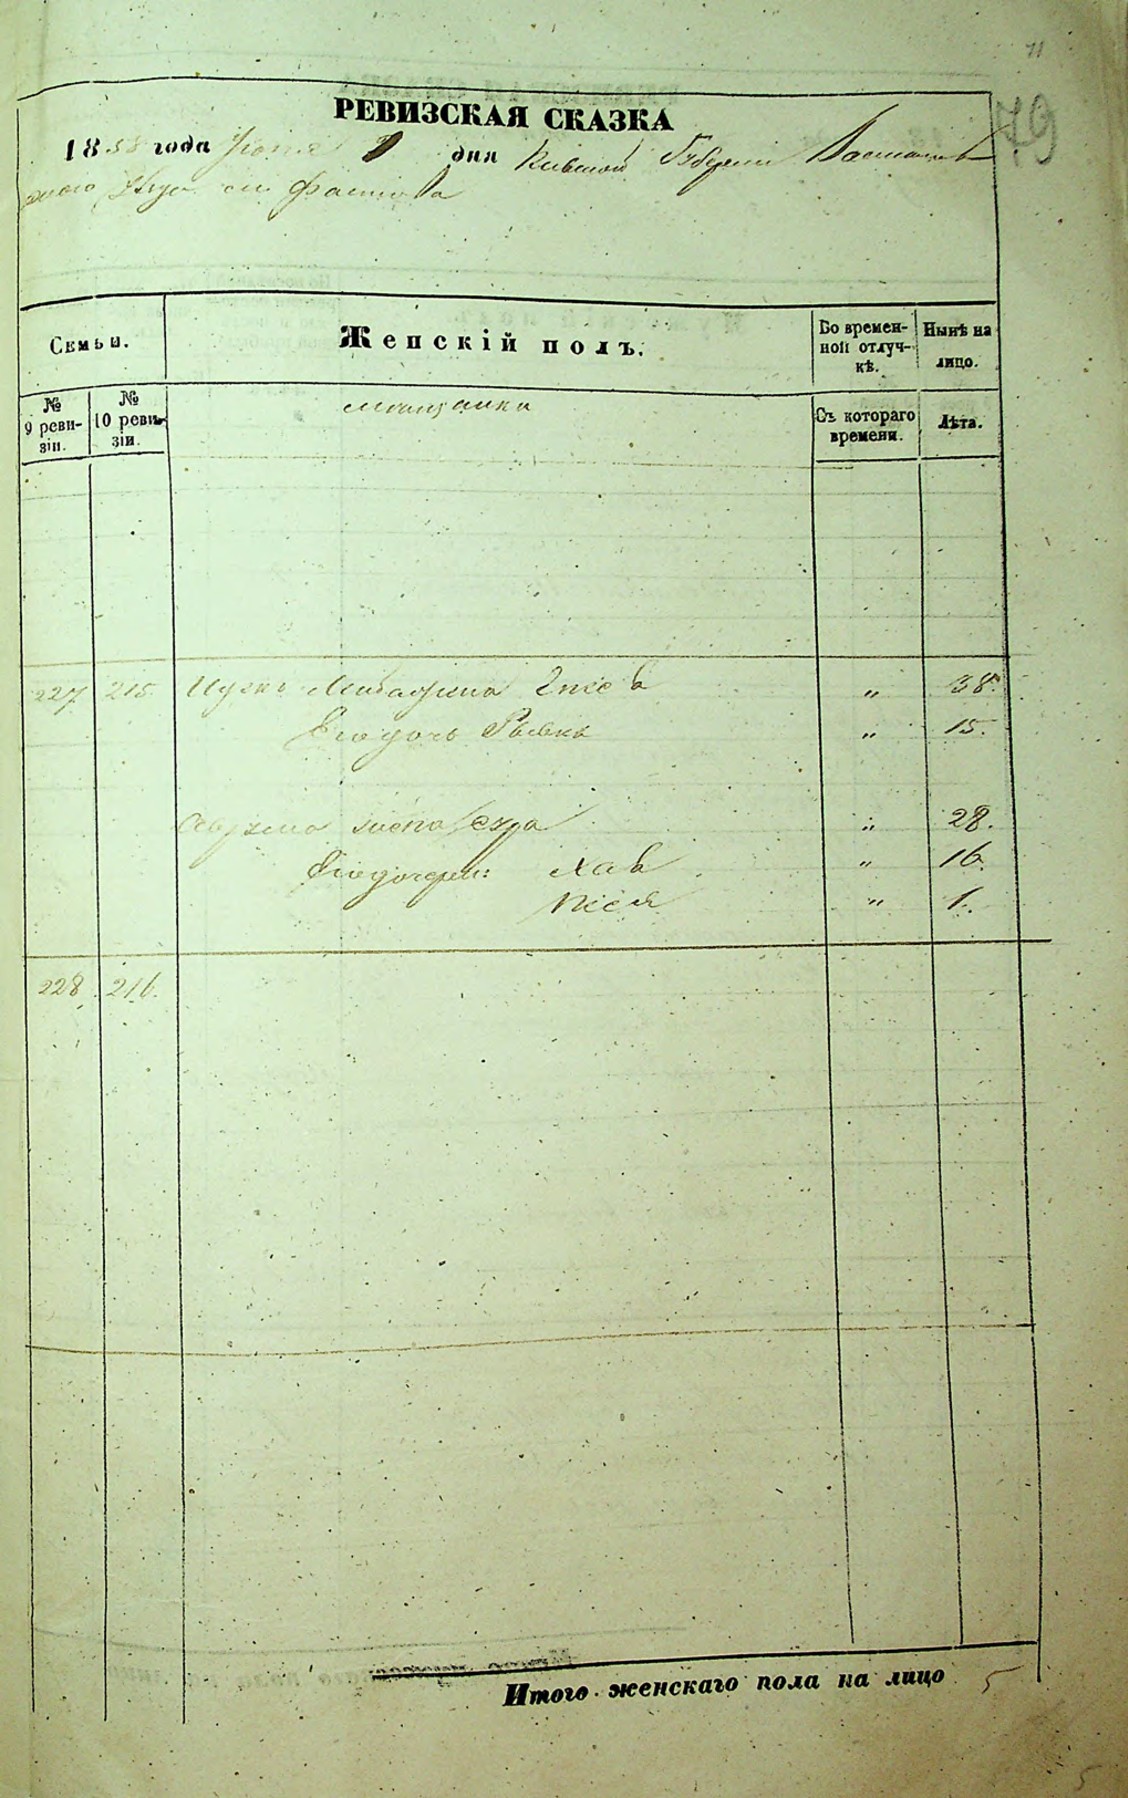 71
79
РЕВИЗСКАЯ СКАЗКА
1858 года Іюня дня Кіевской Губерніи Васильков
скаго м Фастова
Семьи.
Женскій полъ.
Во времен-
ной отлуч-
кѣ.
Нынѣ на
лицо.
№
9 реви-
зіи.
№
10 реви-
зіи.
мѣщанки
Съ котораго
времени.
Лѣта.
227 215 жена " 38.
Его дочь Рывка " 15.
жена " 28.
Его дочери: Хая " 16
Песя " 1.
228 216.
Итого женскаго пола на лицо 5
5